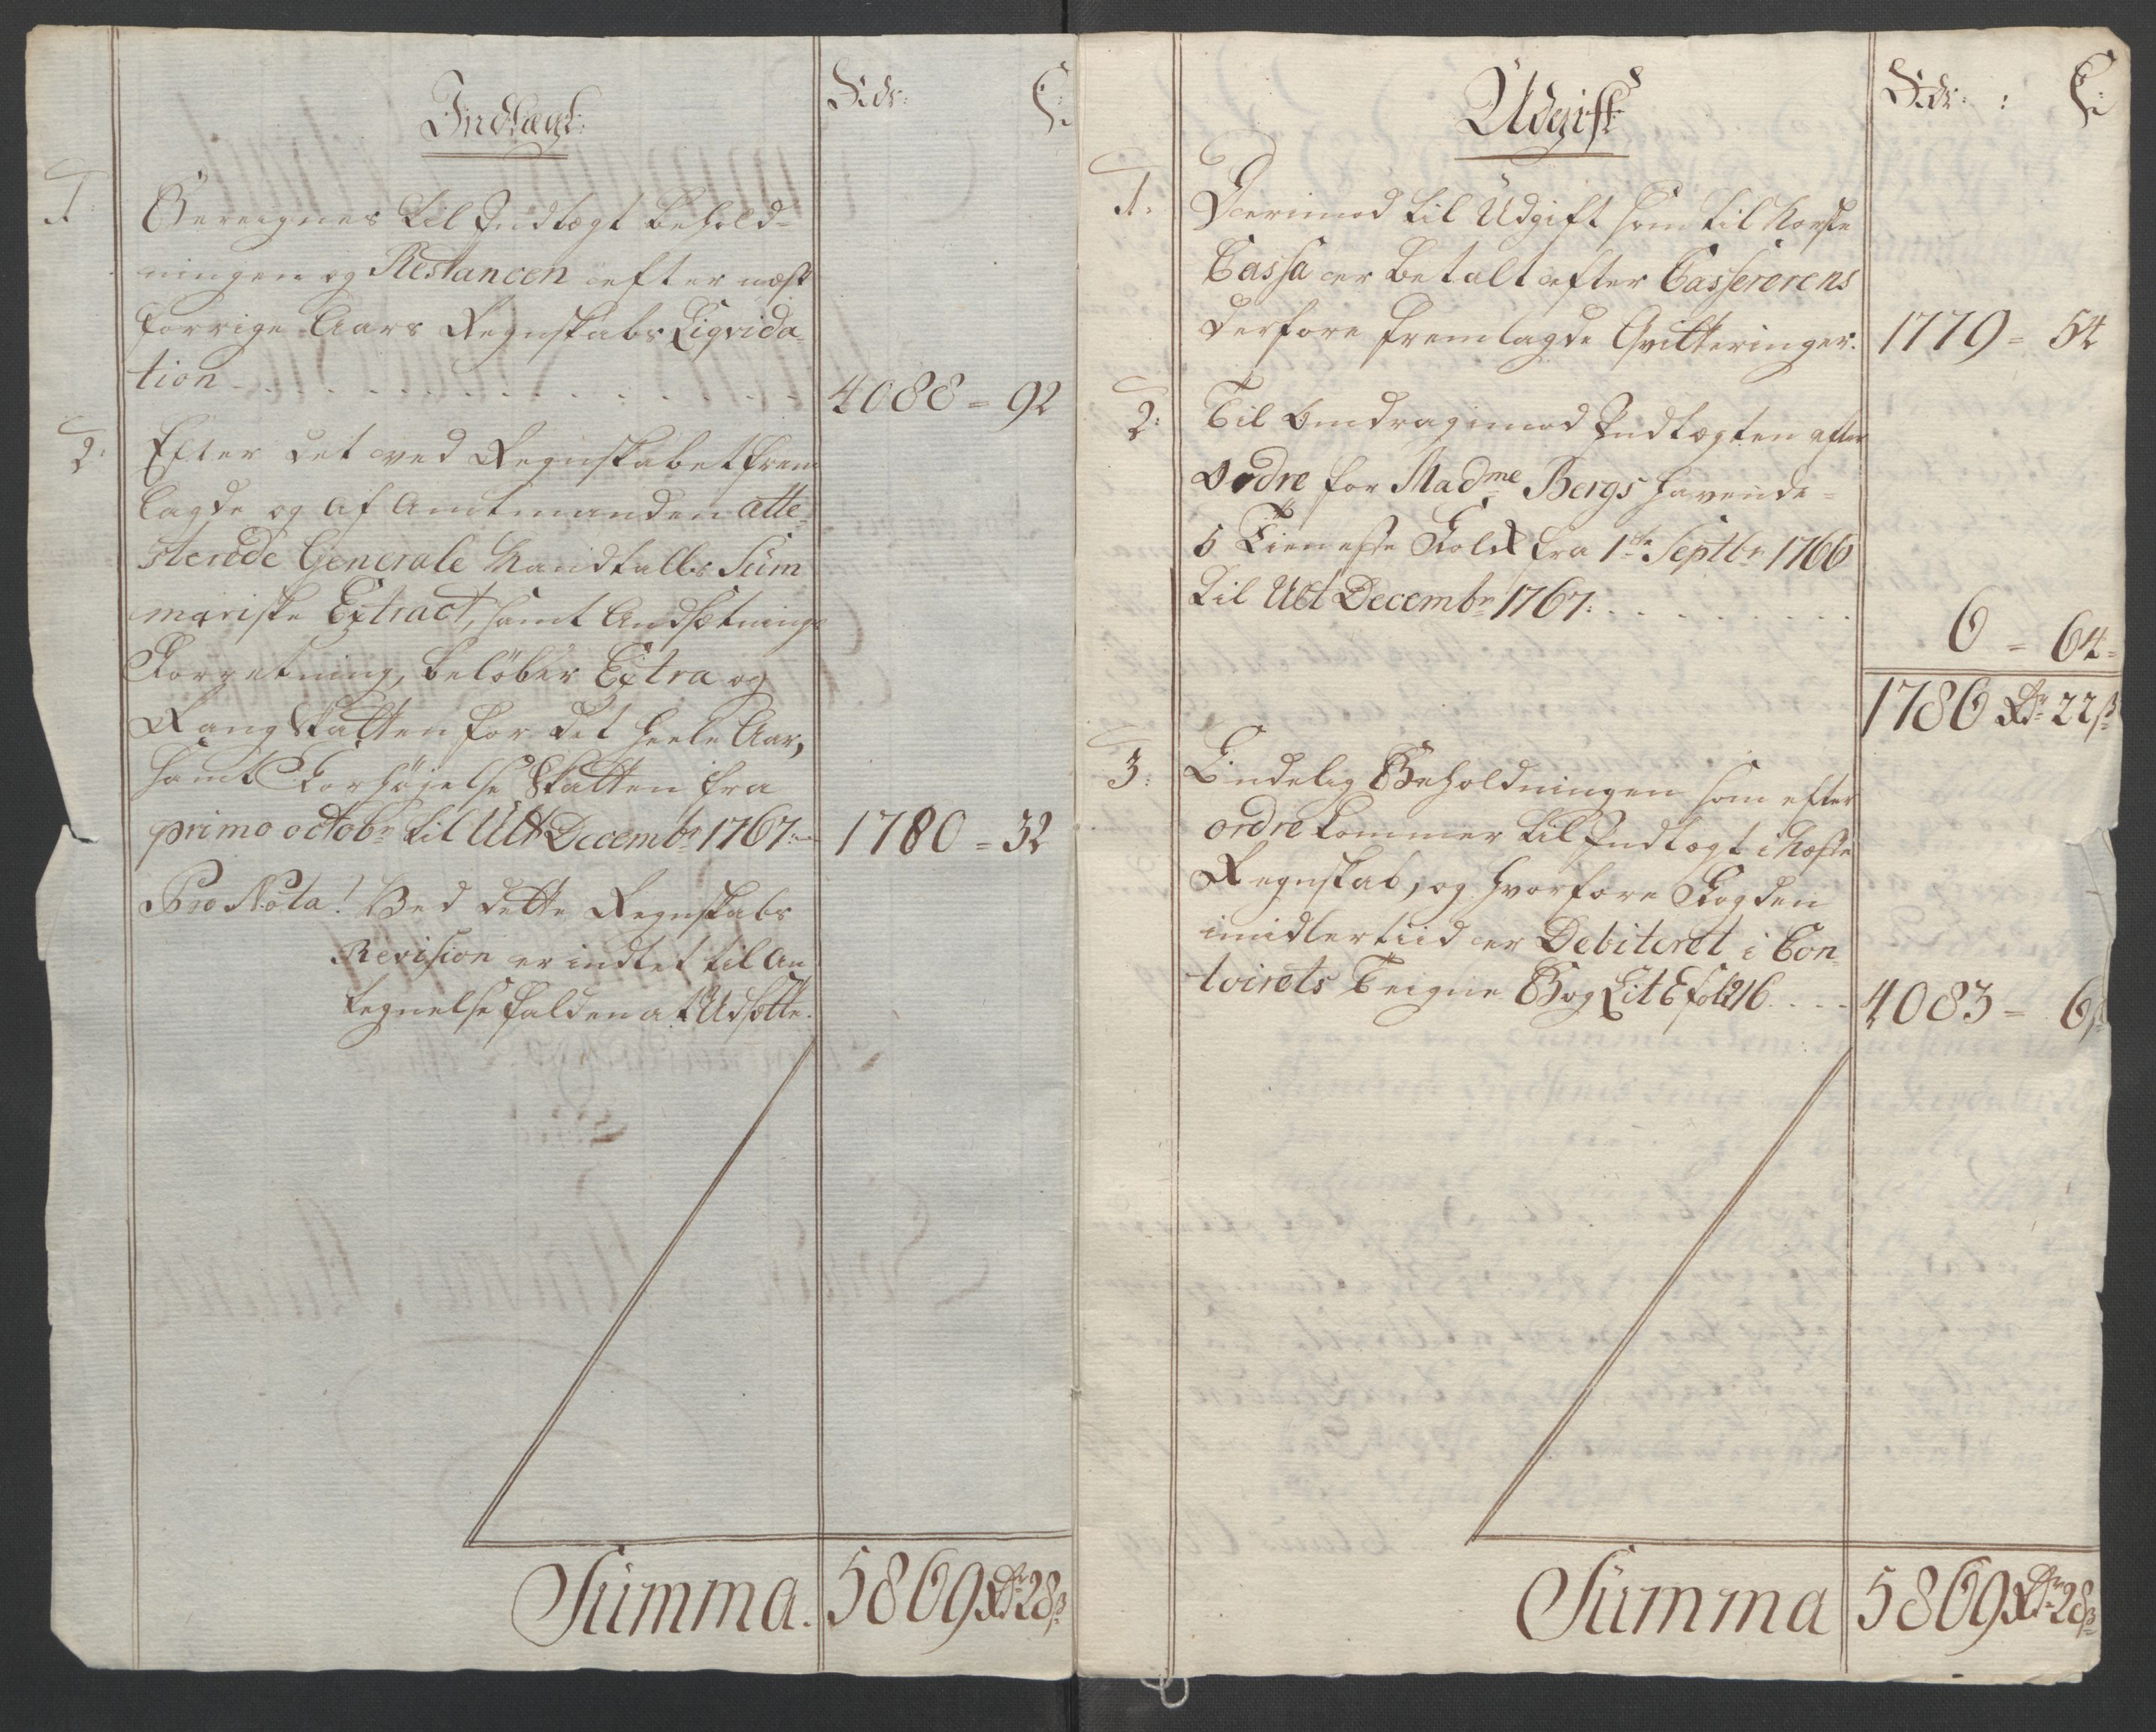 Indtægt: Rdr: ß:
1: Beregnes til Indtægt behold-
ningen og Restancen efter næst
forrige Aars Regnskabs Liqvida-
tion 4088 = 92
2: Efter det ved Regnskabet frem
lagde og af Amtmanden atte-
sterede Generale Mandtalls Sum
mariske Extract, samt Ansætnings
Forretning, beløber Extra og
Rang Skatten for det heele Aar,
samt Forhøjelse Skatten fra
primo octobr til Ult Decembr 1767. 1780 = 32
Pro Nota! Ved dette Regnskabs
Revision er indtet til An
tegnelse falden at Udsætte.
Summa. 5869 Rdr 28 ß
Udgift Rdr: : ß:
1. Derimod til Udgift som til
Cassa er betalt efter Cassererens
derfore fremlagde Qvitteringer. 1779 = 54
2: Til Omdrag imod Indtægten efter
Ordre for Madme Bergs havende
5 Tieneste Folk fra 1ste Septbr 1766
til Ult Decembr 1767. 6 = 64 =
1786 Rdr 22 ß
3: Endelig Beholdningen som efter
ordre kommer til Indtægt i Næste
Regnskab, og hvorfore Fogden
imidlertiid er Debiteret i Con-
toirets Teigne Bog Lit E fol: 216 4083 = 6 ß
Summa 5869 Rdr 28 ß